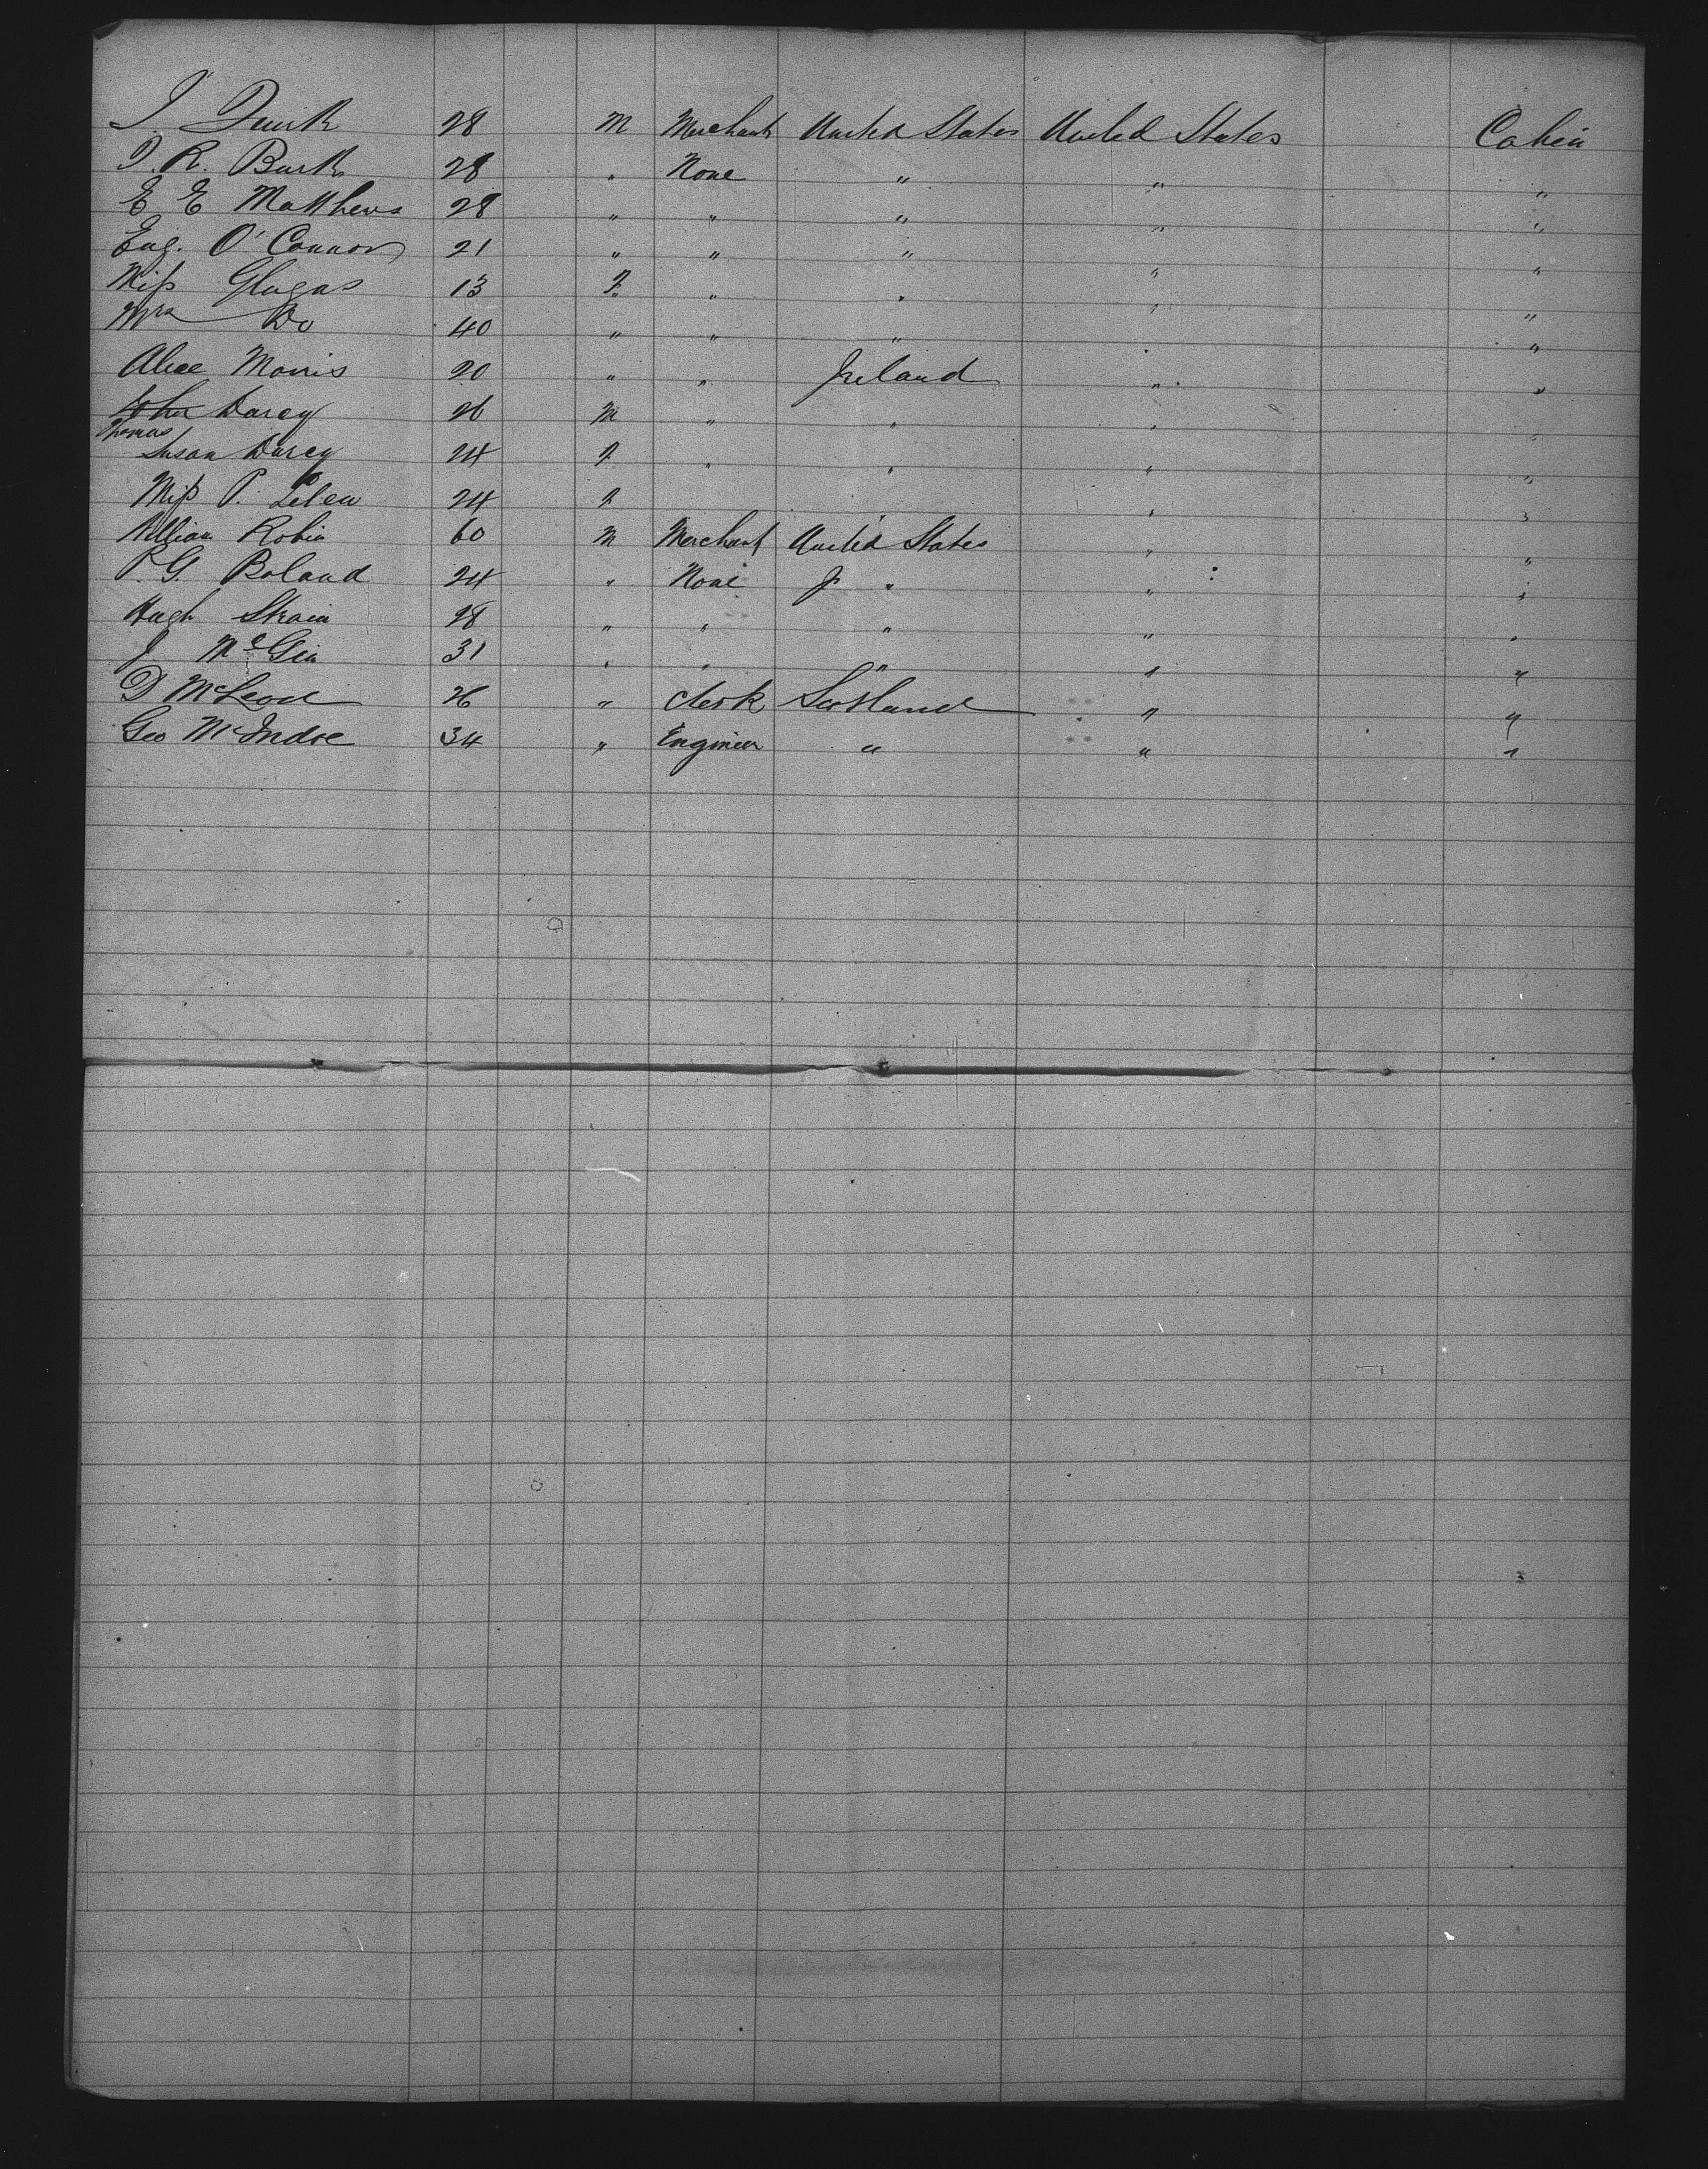 J. Quirk 28 M Merchant United States United States Cabin
J. R. Burk 28 " None " " "
E E Matthews 28 " " " " "
Eug. O'Connor 21 " " " " "
Miss Glugas 13 F " " " "
Mrs Do 40 " " " " "
Alice Morris 20 " " Ireland " "
John Darcy 26 M " " " "
Thomas
Susan Darcy 24 F " " " "
Miss P. 24 F " "
William Robin 60 M Merchant United States " "
P. G. Boland 24 " None " " "
Hugh Strain 28 " " " " "
J McGin 31 " " " " "
D McLeod 26 " Clerk Scotland " "
Geo McIndoe 34 " Engineer " " "